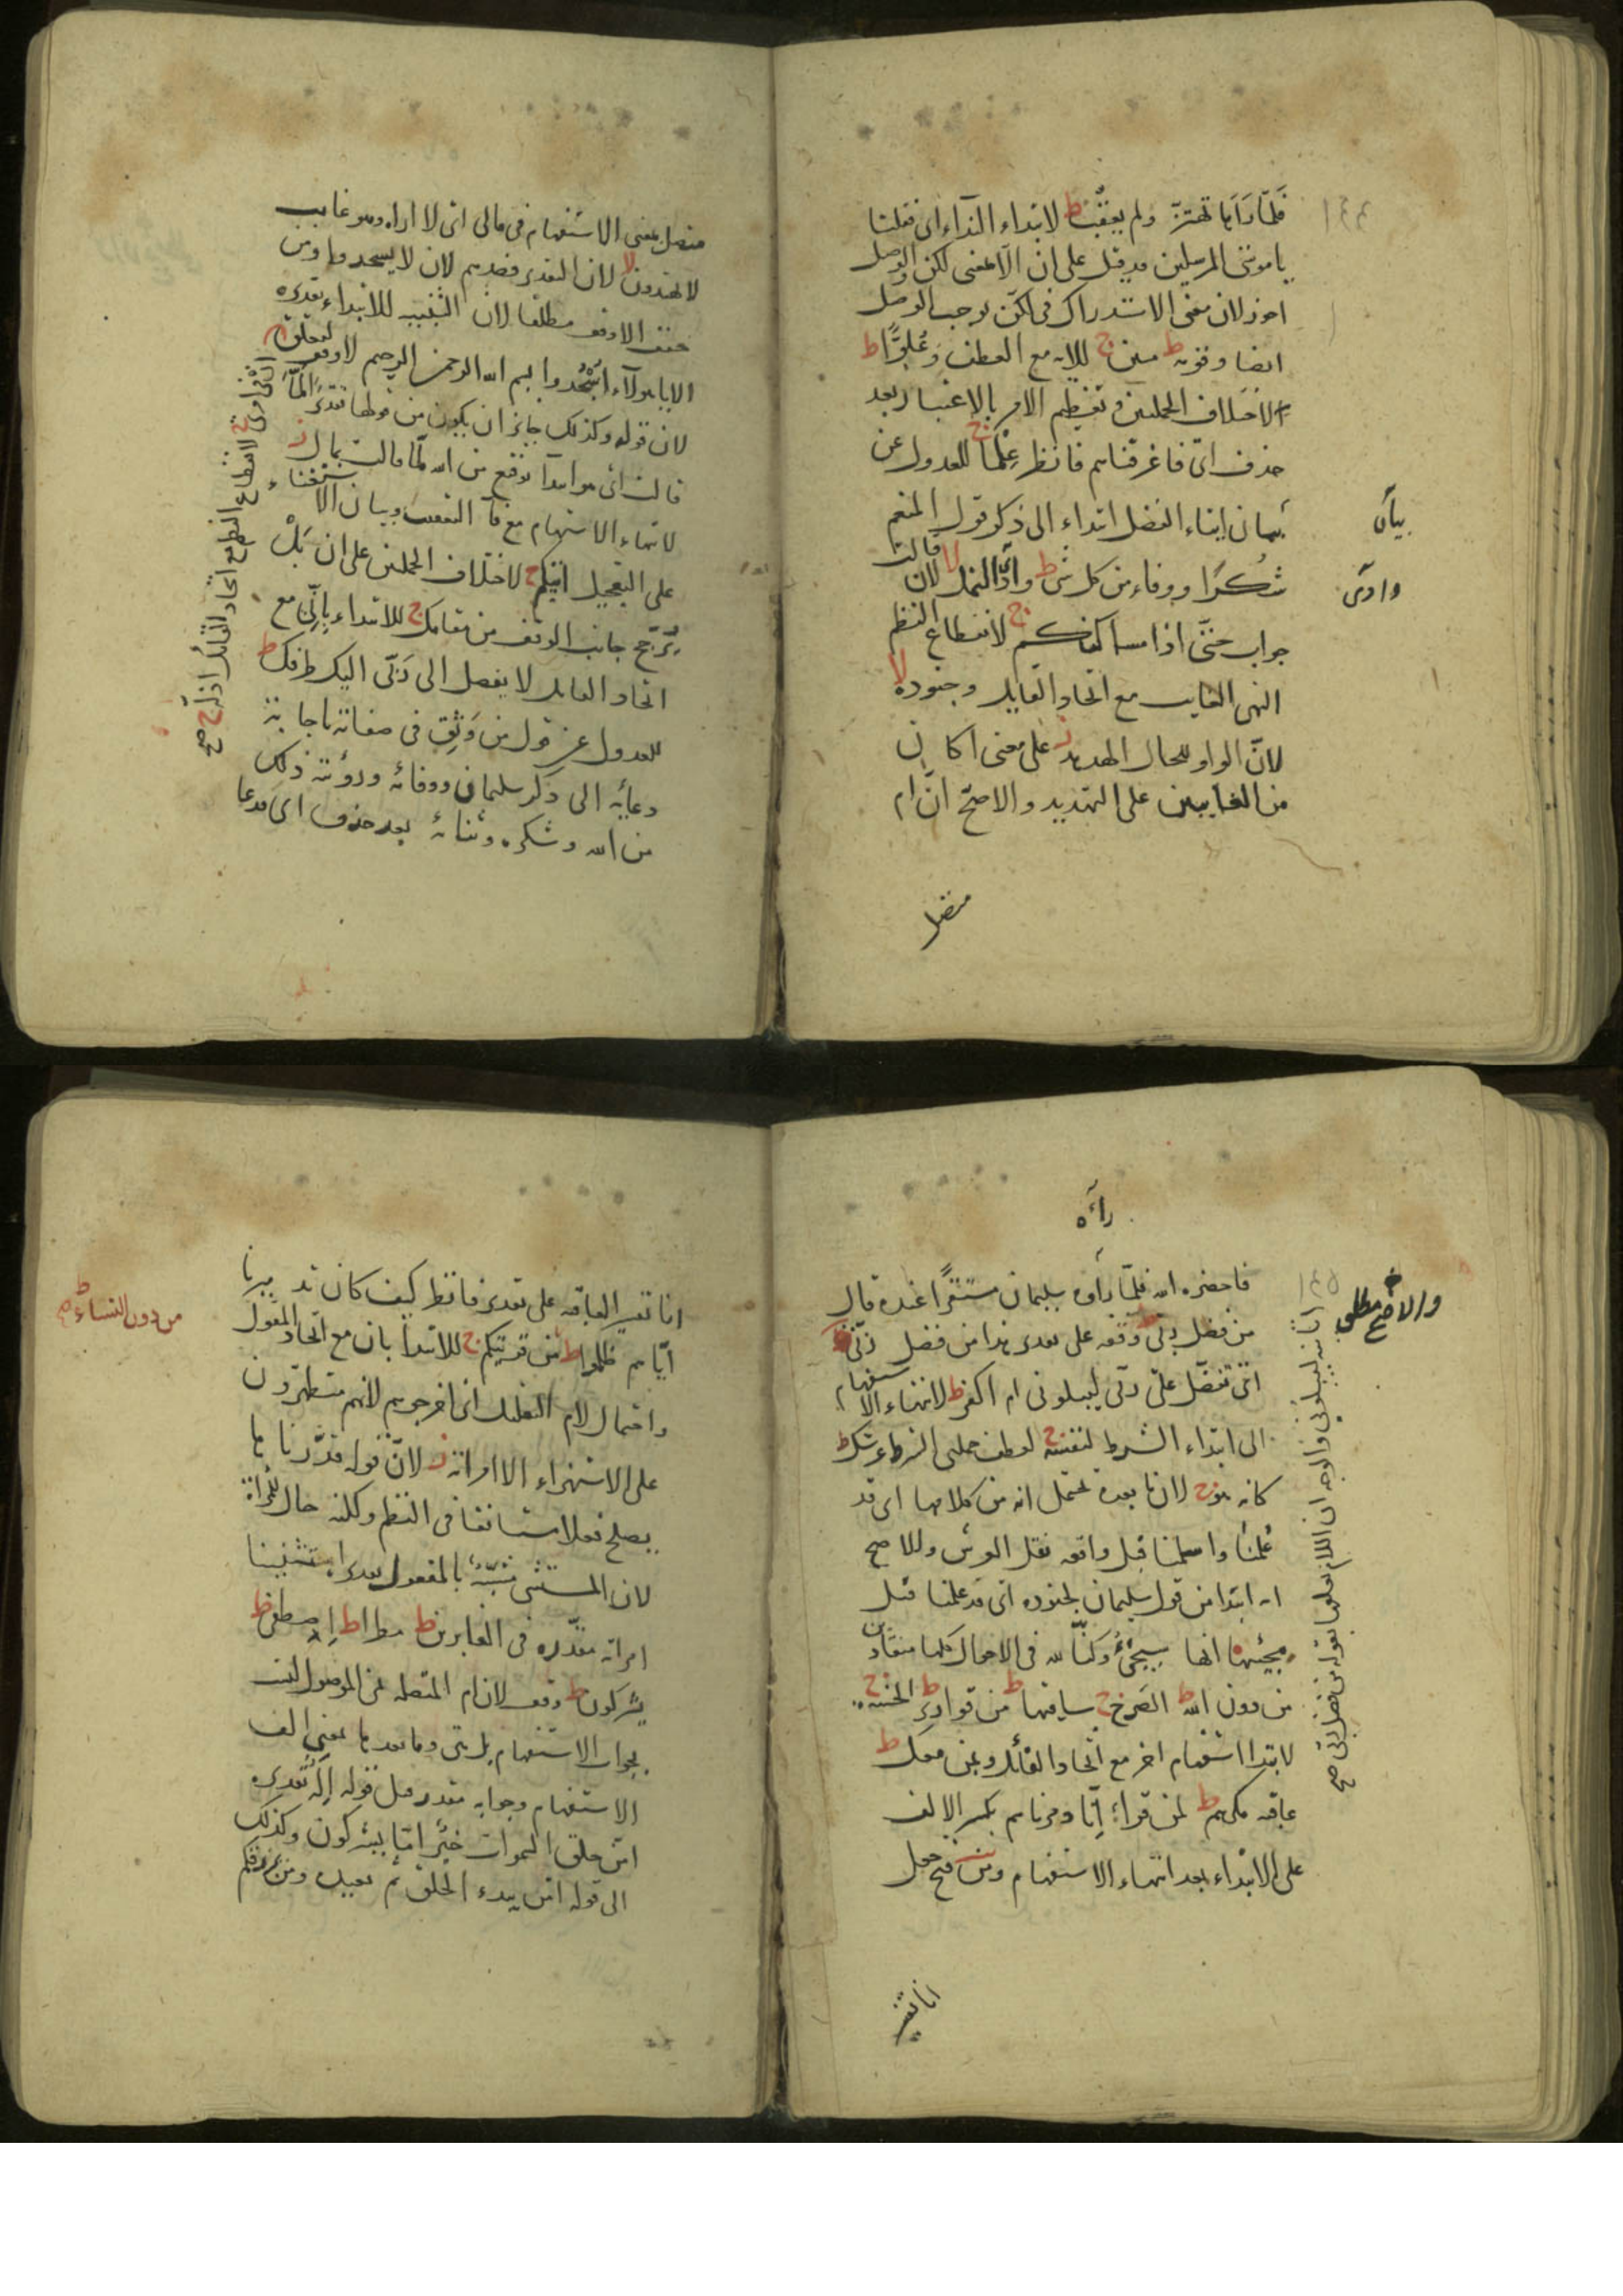 فلمّا رآها تهتزّ ولم يعقّب ط لابتداء النداء اى فقلنا
يا موسى المرسلين قد قيل على ان الّا بمعنى لكن والوصل
اجوز لان معنى الاستدراك فى لكن يوجب الوصل
ايضا وقومه ط مبين ج للاية مع العطف وعلوًّا ط
لاختلاف الجملتين وتعظيم الامر بالاعتبار بعد
حذف اى فاغرقناهم فانظر علما ج للعدول عن
بيان ايتاء الفضل ابتداء الى ذكر قول المنعم
بيان
شكرا ووفاء من كل شئ ط وادى النمل لا لان قالت
وادى
جواب حتى اذا مساكنكم ج لانقطاع النظم
النهى الغايب مع اتحاد القايل وجنوده لا
لانّ الواو للحال الهدهد ز على معنى اكان
من الغايبين على التهديد والاصح انّ ام
متصل
متصل بمعنى الاستفهام فى مالى اى لا اراه وهو غايب
لا يهتدون لا لان التقدير فصدهم لان لا يسجدوا ومن
خفف الا وقف مطلقا لان التنبيه للابتداء تقديره
الا يا هؤلاء اسجدوا بسم الله الرحمن الرحيم لا وقف لتعلق
لان قوله وكذلك جايز ان يكون من قولها
قالت اى هو ابتدا توقع من الله لمّا قالت بمال ز
لانتهاء الاستفهام مع فآ التعقيب وبيان الاستغناء
على التعجيل اتيكم ج لاختلاف الجملتين على ان بل
يرجّح جانب الوقف من مقامك ج للابتداء بانّى مع
اتحاد القايل لا يفصل الى ربّى اليك طرفك ط
للعدول عن قول من وثق فى صفاته باجابة
دعايه الى ذكر سليمان ووفائه ورؤية ذلك
من الله وشكره وثنائه بعد حذف اى فدعا
رآه
فاحضره الله فلمّا رآه سليمان مستقرًّا عنده قال
والاصح مطلق
من فضل ربّى ط وقفه على تقدير هذا من فضل ربّى
اى تفضّل علىّ ربّى ليبلونى ام اكفر ط لانتهاء الاستفهام
الى ابتداء الشرط لنفسه ج لعطف جملتى الشرط عرشك ط
كانه هو ج لان ما بعده يحتمل انه من كلامها اى قد
علمنا واسلمنا قبل واقعه نقل العرش والاصح
انه ابتدا من قول سليمان لجنوده اى قد علمنا قبل
مجيئها انها سيجئ وكنّا لله فى الاحوال كلها منقادين
من دون الله ط الصرح ج ساقيها ط من قوارير ط الحسنة ج
لابتدا استفهام اخر مع اتحاد القائل وبمن معك ط
عاقبة مكرهم ط لمن قراء إنّا دمرناهم بكسر الالف
على الابتداء بعد انتهاء الاستفهام ومن فتح جعل
انا تفسير
انا تفسير العاقبه على تقدير فانظر كيف كان تدميرنا
من دون النساء ط صح
ايّاهم ظلموا ط من قريتكم ج للابتدا بان مع اتحاد المقول
واحتمال لام التعليل اى اخرجوهم لانهم متطهّرون
على الاستهزاء الا امراته ز لانّ قوله قدّرناها
يصلح فعلا مستانفا فى النظم ولكنه حال للمراة
لان المستثنى مشبّه بالمفعول تقديره استثنينا
امراته مقدّره فى الغابرين ط مطرا ط اصطفى ط
يشركون ط وقف لان ام المتصله من الموصول ليست
بجواب الاستفهام بل هى وما بعدها بمعنى الف
الاستفهام وجوابه مقدر مثل قوله اله تقديره
امّن خلق السموات خير امّا يشركون وكذلك
الى قوله امّن يبدء الخلق ثم يعيده ومن يرزقكم